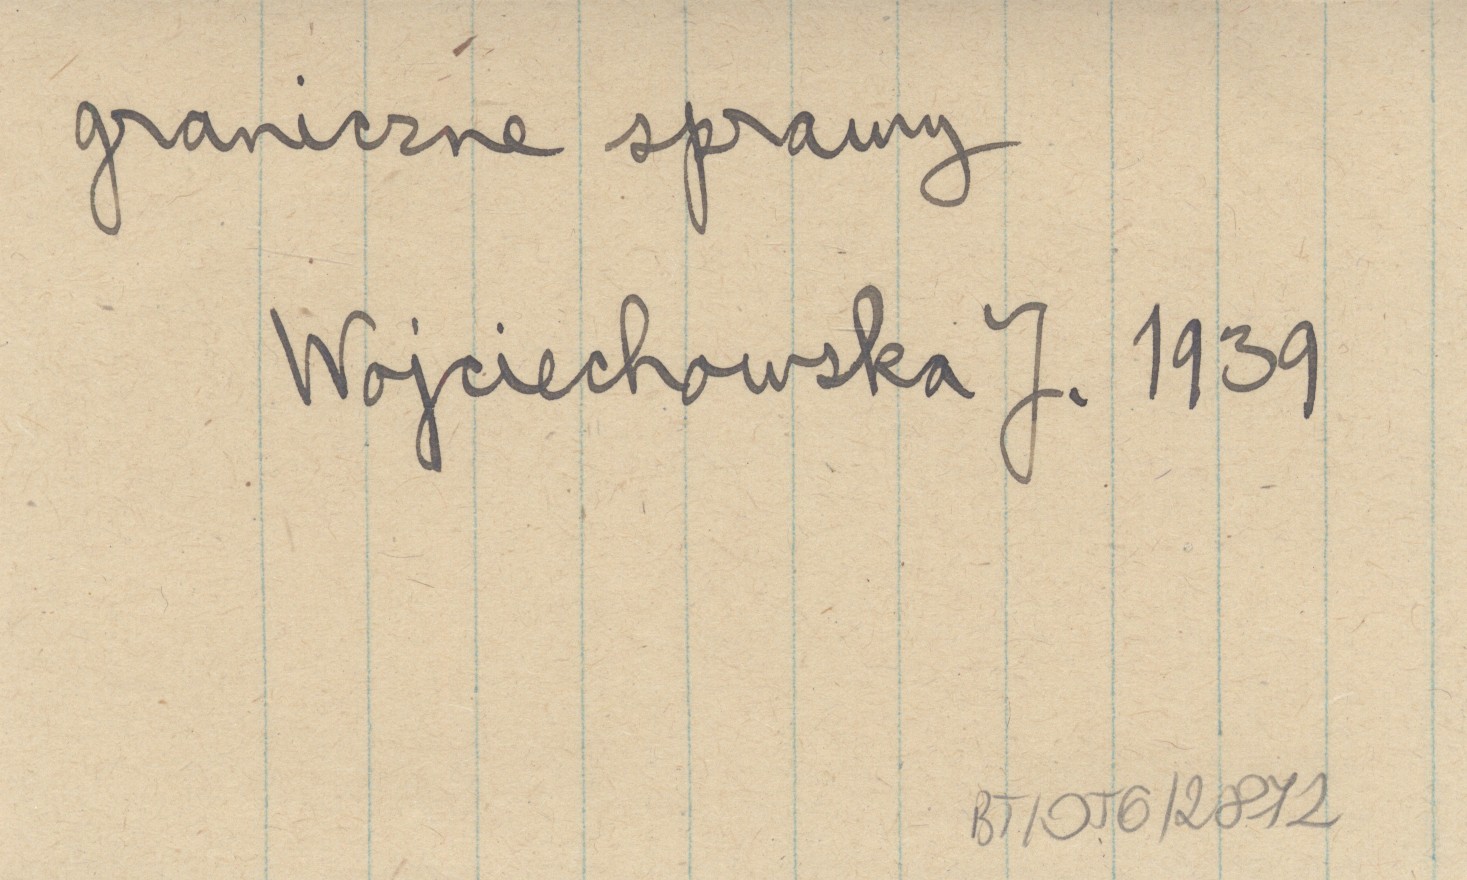 graniczne sprawy
Wojciechowska J. 1939
BT/OT6/2872